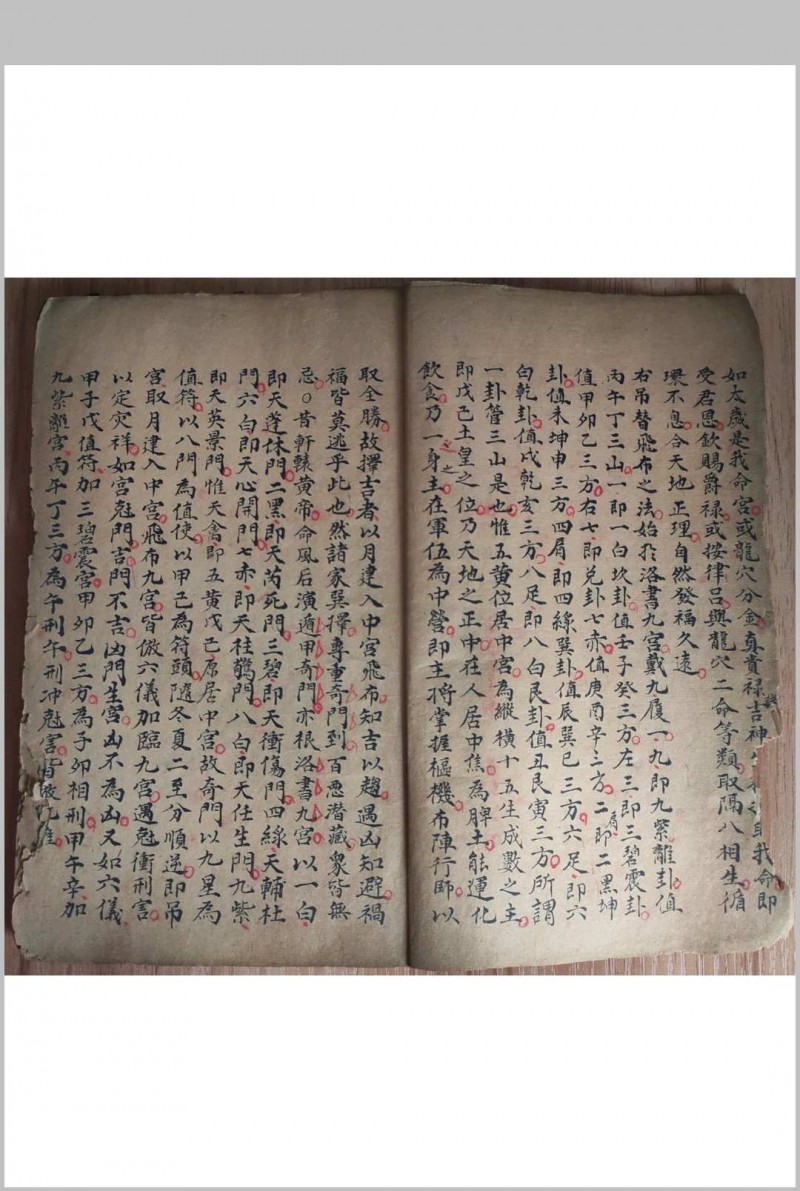 如太歲是我命宮或龍穴分金真貴禄吉神我命即
受君恩飲賜爵禄或按律吕與龍穴二命等類取隔八相生循
環不息合天地正理自然發福久遠
右吊替飛布之法始於洛書九宮戴九履一九即九紫離卦值
丙午丁三山一即一白坎卦值壬子癸三方左三即三碧震卦
值甲卯乙三方右七即兑卦七赤值庚酉辛三方二肩即二黑坤
卦值未坤申三方四肩即四綠巽卦值辰巽巳三方六足即六
白乾卦值戌乾亥三方八足即八白艮卦值丑艮寅三方所謂
一卦管三山是也惟五黄位居中宮為縱橫十五生成數之主
即戊己土皇之位乃天地之正中在人居中焦為脾土能運化
飲食乃一身之主在軍伍為中營即主將掌握樞機布陣行師以
取全勝故擇吉者以月建入中宮飛布知吉以趨遇凶知避禍
福皆莫逃乎此也然諸家巽擇專重奇門到百惡潜藏衆皆無
忌○昔軒轅黄帝命風后演遁甲奇門亦根洛書九宮以一白
即天蓬休門二黑即天芮死門三碧即天衝傷門四綠天輔杜
門六白即天心開門七赤即天柱驚門八白即天任生門九紫
即天英景門惟天禽即五黄戊己原居中宮故奇門以九星為
值符以八門為值使以甲己為符頭隨冬夏二至分順逆即吊
宮取月建入中宮飛布九宮皆倣六儀加臨九宮遇尅衝刑害
以定灾祥如宮尅門吉門不吉凶門生宮凶不為凶又如六儀
甲子戊值符加三碧震宮甲卯乙三方為子卯相刑甲午辛加
九紫離宮丙午丁三方為午刑午刑冲尅害皆倣此推